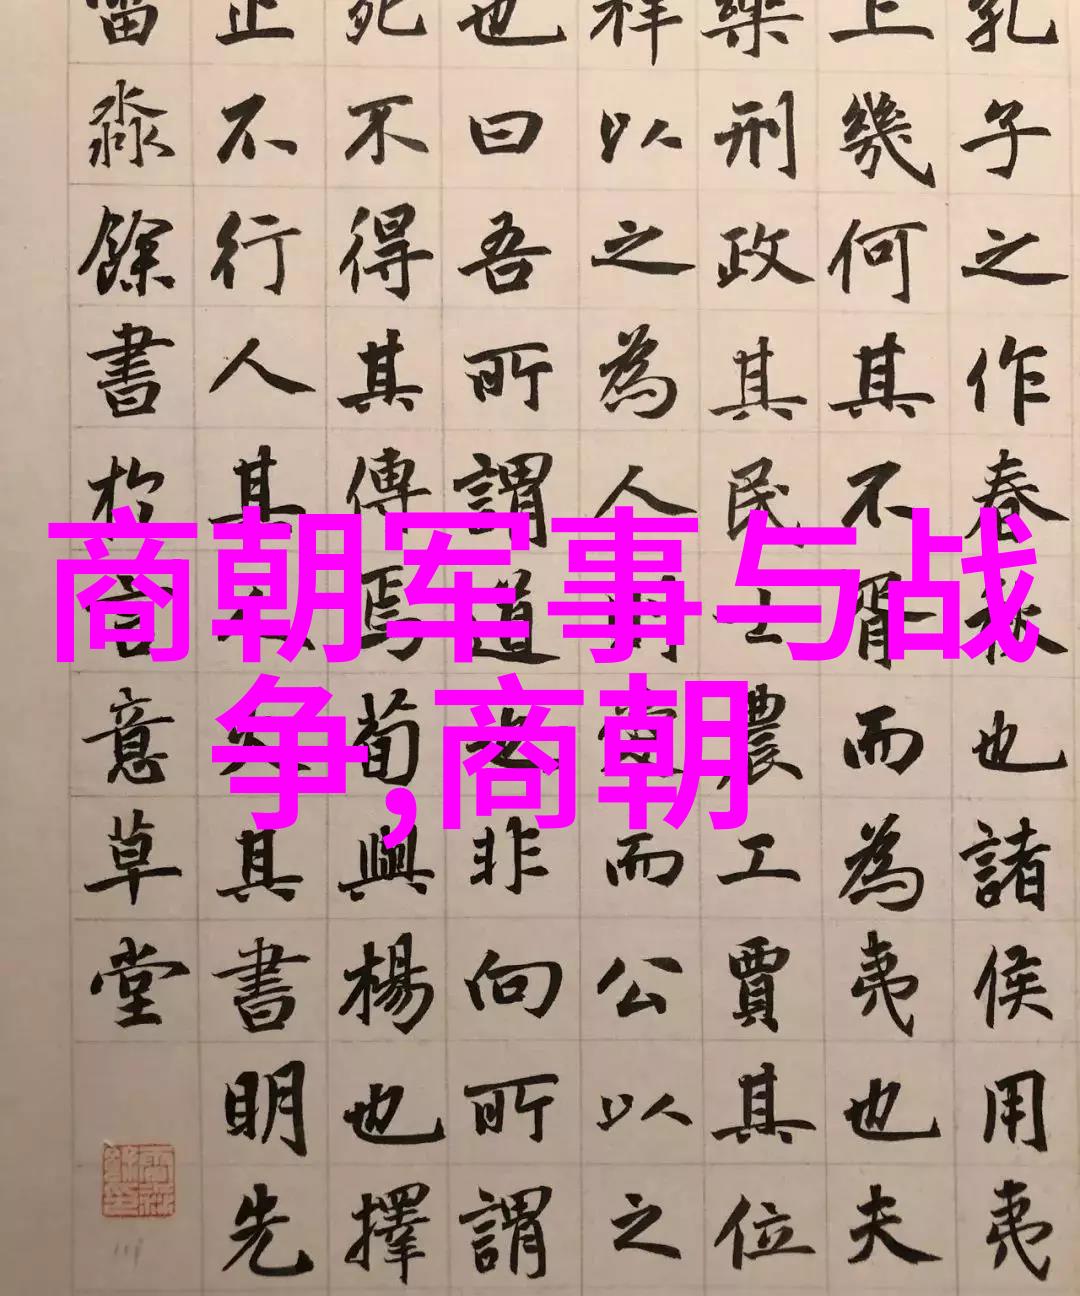 孔子之作春秋也諸侯用夷
上幾何其不胥而為夷也夫
樂刑政其民士農工賈其位
祥以之為人則愛而公以之
也曰吾所謂道也非向所謂
死不得其傳焉荀與楊也擇
止不行人其人火其書明先
淼餘書於意草堂
商朝军事与战
争,商朝